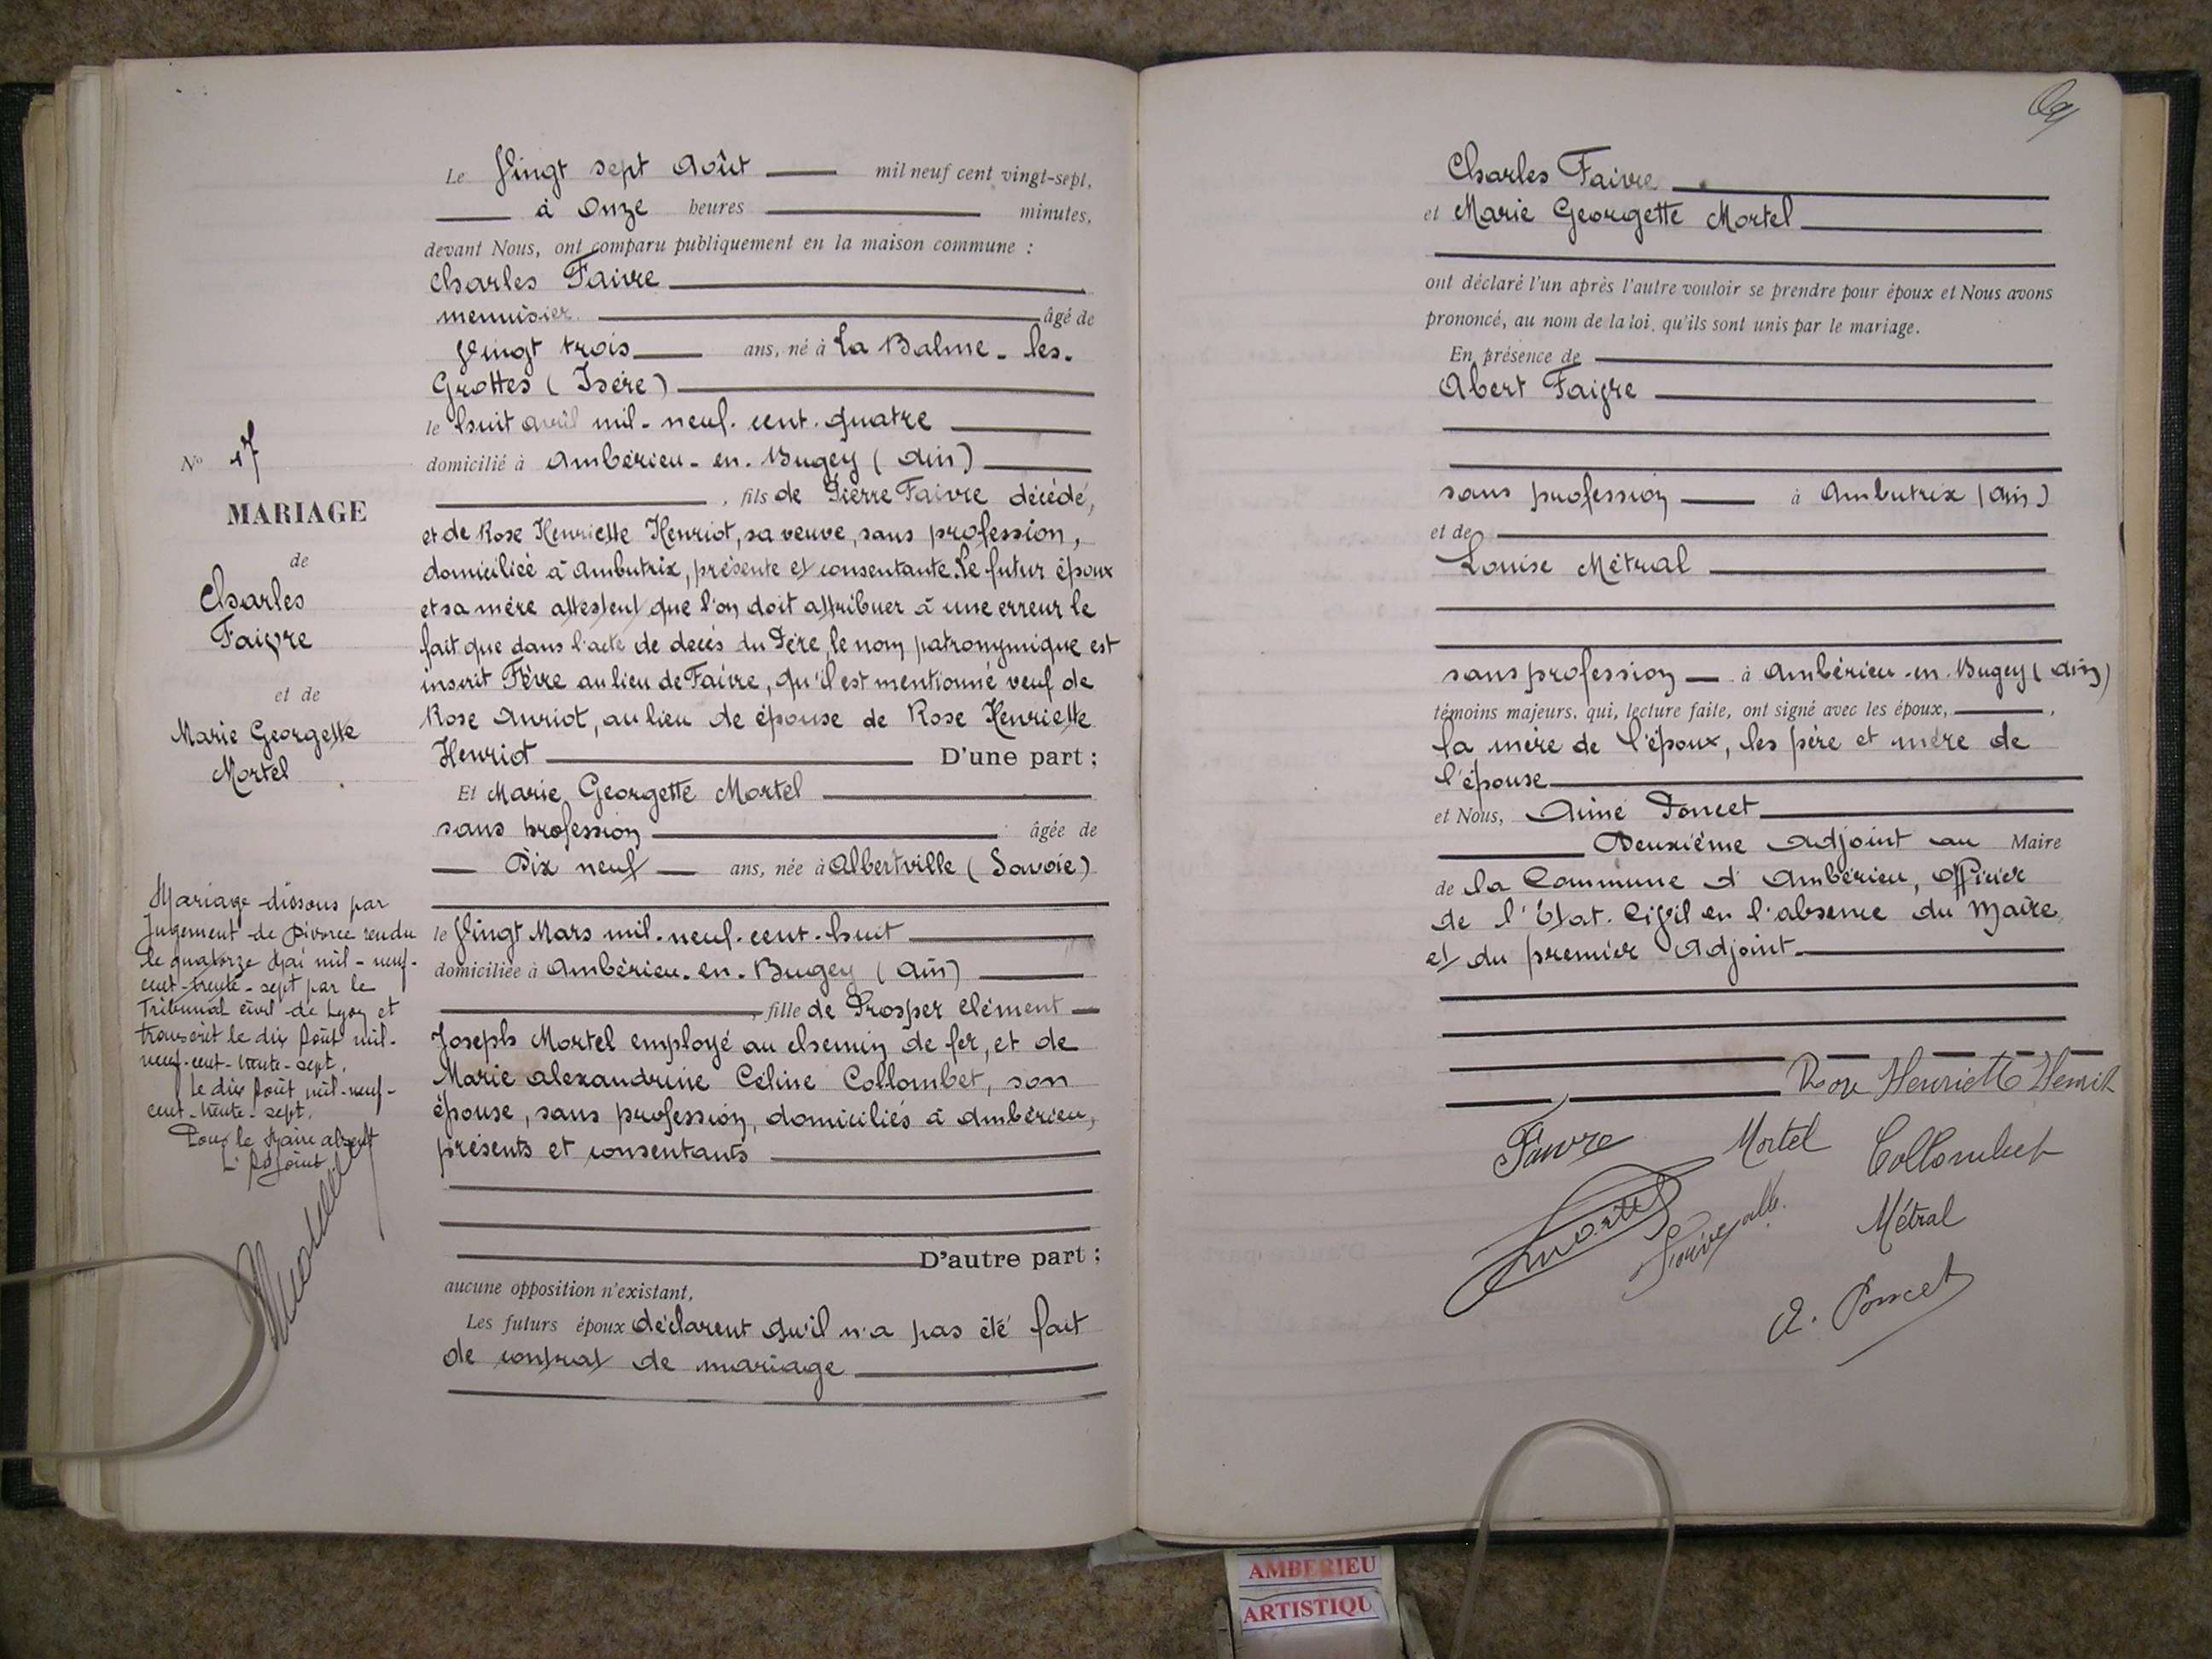 Le Vingt sept Août mil neuf cent vingt-sept,
à Onze heures minutes,
devant Nous, ont comparu publiquement en la maison commune :
Charles Faivre
menuisier âgé de
Vingt trois ans, né à La Balme-les-
Grottes (Isère)
le huit avril mil-neuf-cent-quatre
domicilié à Ambérieu-en-Bugey (Ain)
, fils de Pierre Faivre décédé,
et de Rose Henriette Henriot, sa veuve, sans profession,
domiciliée à Ambutrix, présente et consentante. Le futur époux
et sa mère attestent que l'on doit attribuer à une erreur le
fait que dans l'acte de decès du Père, le nom patronymique est
inscrit Fèvre au lieu de Faivre, qu'il est mentionné veuf de
Rose Anriot, au lieu de épouse de Rose Henriette
Henriot D'une part ;
Et Marie Georgette Mortel
sans profession âgée de
Dix neuf ans, née à Albertville (Savoie)
le Vingt Mars mil-neuf-cent-huit
domiciliée à Ambérieu-en-Bugey (Ain)
, fille de Prosper Clément
Joseph Mortel employé au chemin de fer, et de
Marie Alexandrine Céline Collombet, son
épouse, sans profession, domiciliés à Ambérieu,
présents et consentants
D'autre part ;
aucune opposition n'existant,
Les futurs époux déclarent qu'il n'a pas été fait
de contrat de mariage
No 47
MARIAGE
de
Charles
Faivre
et de
Marie Georgette
Mortel
Mariage dissous par
Jugement de Divorce rendu
le quatorze Mai mil-neuf-
cent-trente-sept par le
Tribunal civil de Lyon et
transcrit le dix Août mil-
neuf-cent-trente-sept.
Le dix Août mil-neuf-
cent-trente-sept.
Pour le Maire absent
L'Adjoint
69
Charles Faivre
et Marie Georgette Mortel
ont déclaré l'un après l'autre vouloir se prendre pour époux et Nous avons
prononcé, au nom de la loi, qu'ils sont unis par le mariage.
En présence de
Abert Faivre
sans profession à Ambutrix (Ain)
et de
Louise Métral
sans profession à Ambérieu-en-Bugey (Ain)
témoins majeurs, qui, lecture faite, ont signé avec les époux,
la mère de l'époux, les père et mère de
l'épouse
et Nous, Aimé Poncet
Deuxième Adjoint au Maire
de la Commune d'Ambérieu, Officier
de l'Etat-Civil en l'absence du Maire
et du premier Adjoint.
Rose Henriette
Faivre Mortel Collombet
Mortel Métral
A. Poncet
AMBERIEU
ARTISTIQU